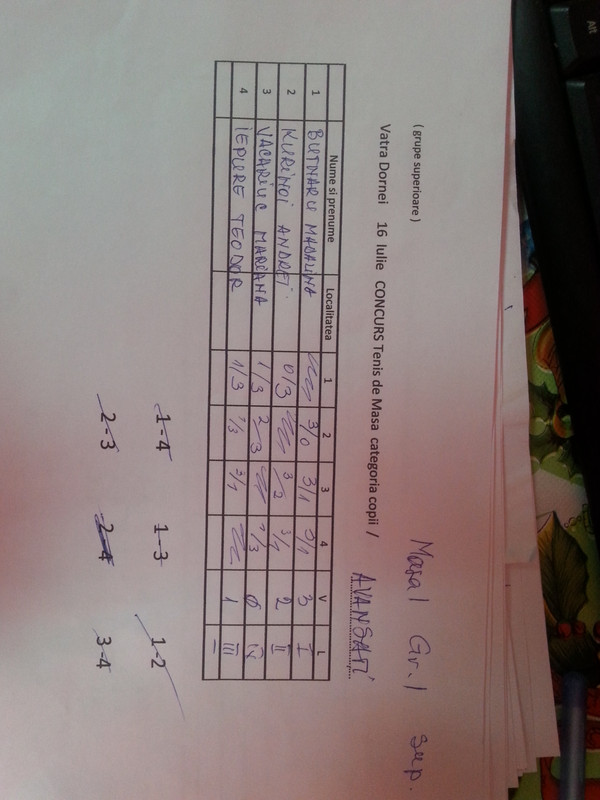 Masa 1 Gr. 1 sup.
( grupe superioare )
Vatra Dornei 16 Iulie CONCURS Tenis de Masa categoria copii / AVANSATI
Nume si prenume Localitatea 1 2 3 4 V L
1 BUTNARU MADALINA 3/0 3/1 3/1 3 I
2 KURIMOI ANDREI 0/3 3/2 3/1 2 II
3 VACARIUC MARIANA 1/3 2-3 1/3 0 IV
4 IEPURE TEODOR 1/3 1/3 3/1 1 III
1-4 1-3 1-2
2-3 2-4 3-4